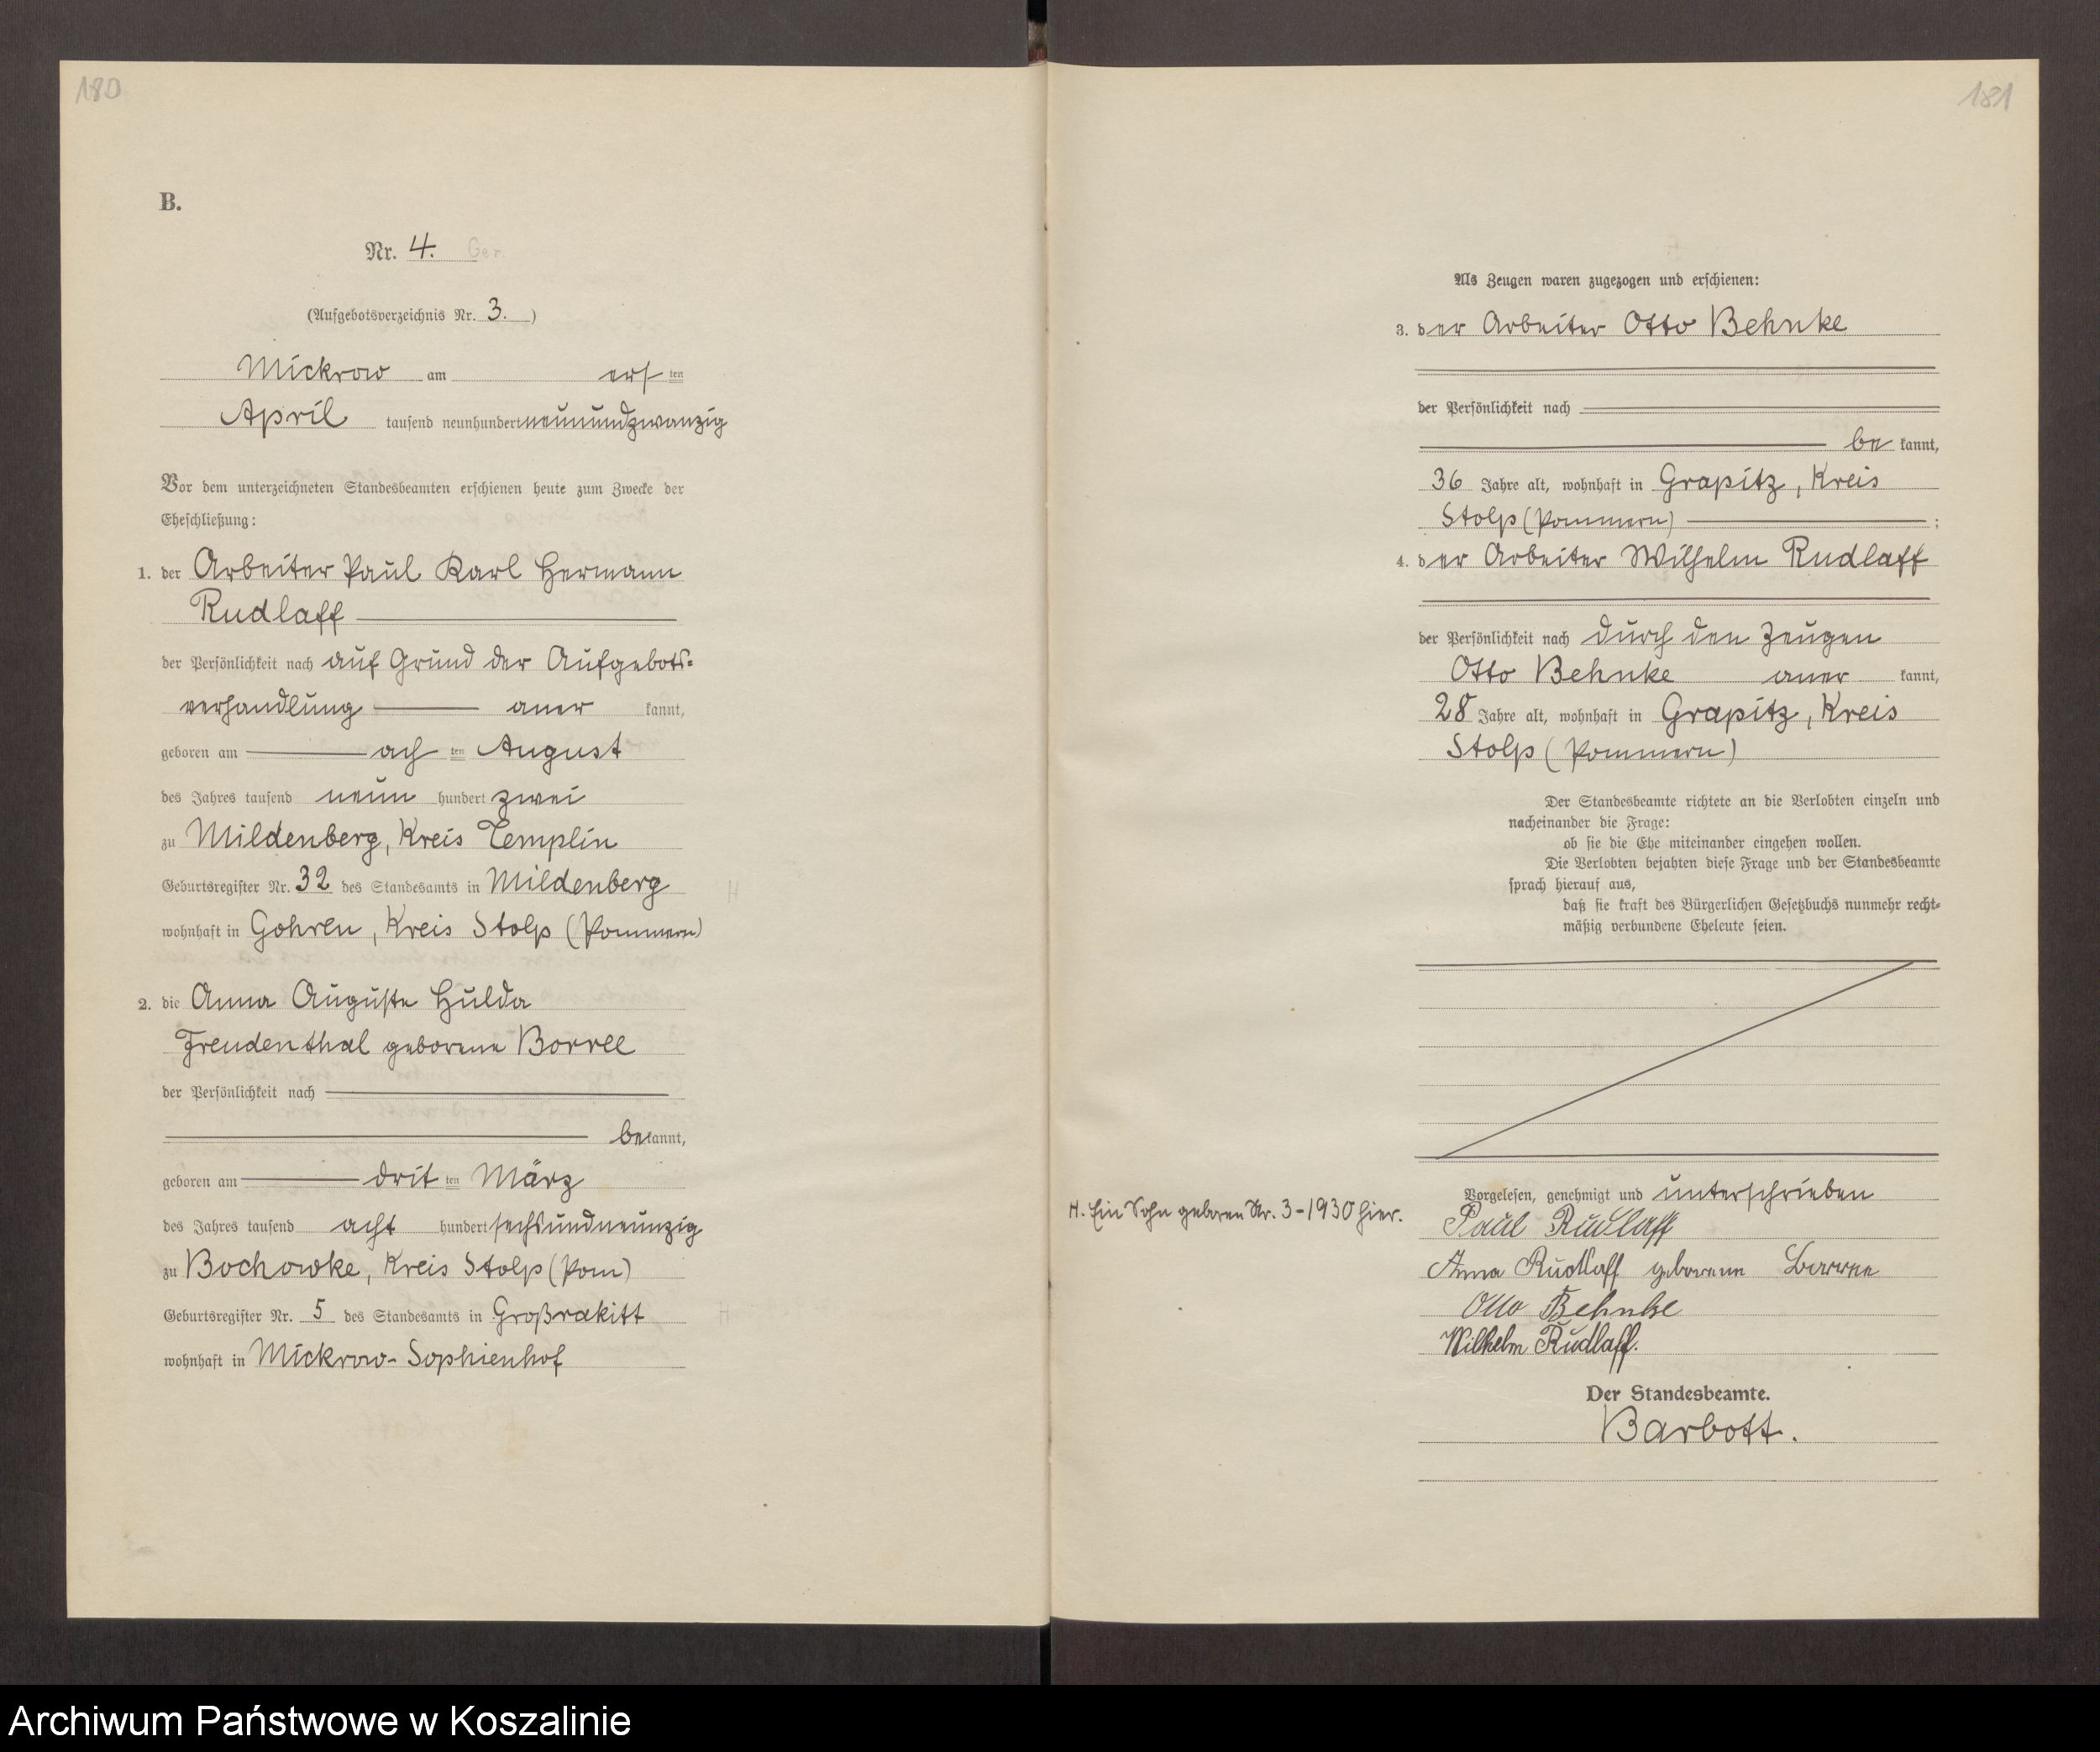 180
B.
Nr. 4. Ger.
(Aufgebotsverzeichnis Nr. 3. )
Mickrow am erſten
April tauſend neunhundert neunundzwanzig
Vor dem unterzeichneten Standesbeamten erſchienen heute zum Zwecke der
Eheſchließung:
1. der Arbeiter Paul Karl Hermann
Rudlaff
der Perſönlichkeit nach auf Grund der Aufgebots=
verhandlung aner kannt,
geboren am ach ten August
des Jahres tauſend neun hundert zwei
zu Mildenberg, Kreis Templin
Geburtsregiſter Nr. 32 des Standesamts in Mildenberg H
wohnhaft in Gohren, Kreis Stolp (Pommern)
2. die Anna Auguſte Hulda
Freudenthal geborene Borree
der Perſönlichkeit nach
bekannt,
geboren am drit ten März
des Jahres tauſend acht hundert ſechsundneunzig
zu Bochowke, Kreis Stolp (Pom)
Geburtsregiſter Nr. 5 des Standesamts in Großrakitt H
wohnhaft in Mickrow-Sophienhof
181
Als Zeugen waren zugezogen und erſchienen:
3. der Arbeiter Otto Behnke
der Perſönlichkeit nach
be kannt,
36 Jahre alt, wohnhaft in Grapitz, Kreis
Stolp (Pommern) ;
4. der Arbeiter Wilhelm Rudlaff
der Perſönlichkeit nach durch den Zeugen
Otto Behnke aner kannt,
28 Jahre alt, wohnhaft in Grapitz, Kreis
Stolp (Pommern)
Der Standesbeamte richtete an die Verlobten einzeln und
nacheinander die Frage:
ob ſie die Ehe miteinander eingehen wollen.
Die Verlobten bejahten dieſe Frage und der Standesbeamte
ſprach hierauf aus,
daß ſie kraft des Bürgerlichen Geſetzbuchs nunmehr recht=
mäßig verbundene Eheleute ſeien.
Vorgeleſen, genehmigt und unterſchrieben
H. Ein Sohn geboren Nr. 3-1930 hier.
Paul Rudlaff
Anna Rudlaff geborene Borree
Otto Behnke
Wilhelm Rudlaff.
Der Standesbeamte.
Barbott.
Archiwum Państwowe w Koszalinie